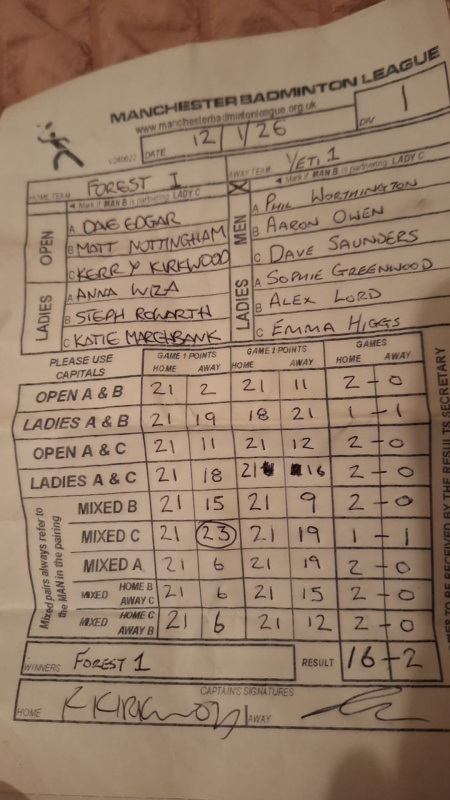 MANCHESTER BADMINTON LEAGUE
www.manchesterbadmintonleague.org.uk
DATE 12/1/26 DIV 1
HOME TEAM FOREST 1 AWAY TEAM YETI 1
Mark if MAN B is partnering LADY C Mark if MAN B is partnering LADY C
OPEN MEN
A DAVE EDGAR A PHIL WORTHINGTON
B MATT NOTTINGHAM B AARON OWEN
C KERRY KIRKWOOD C DAVE SAUNDERS
LADIES LADIES
A ANNA WIZA A SOPHIE GREENWOOD
B STEPH ROWARTH B ALEX LORD
C KATIE MARCHBANK C EMMA HIGGS
PLEASE USE CAPITALS GAME 1 POINTS GAME 2 POINTS GAMES
HOME AWAY HOME AWAY HOME AWAY
OPEN A & B 21 2 21 11 2-0
LADIES A & B 21 19 18 21 1-1
OPEN A & C 21 11 21 12 2-0
LADIES A & C 21 18 21 16 2-0
Mixed pairs always refer to the MAN in the pairing
MIXED B 21 15 21 9 2-0
MIXED C 21 23 21 19 1-1
MIXED A 21 6 21 19 2-0
MIXED HOME B AWAY C 21 6 21 15 2-0
MIXED HOME C AWAY B 21 6 21 12 2-0
WINNERS FOREST 1 RESULT 16-2
CAPTAIN'S SIGNATURES
HOME K KIRKWOOD AWAY
TO BE RECEIVED BY THE RESULTS SECRETARY